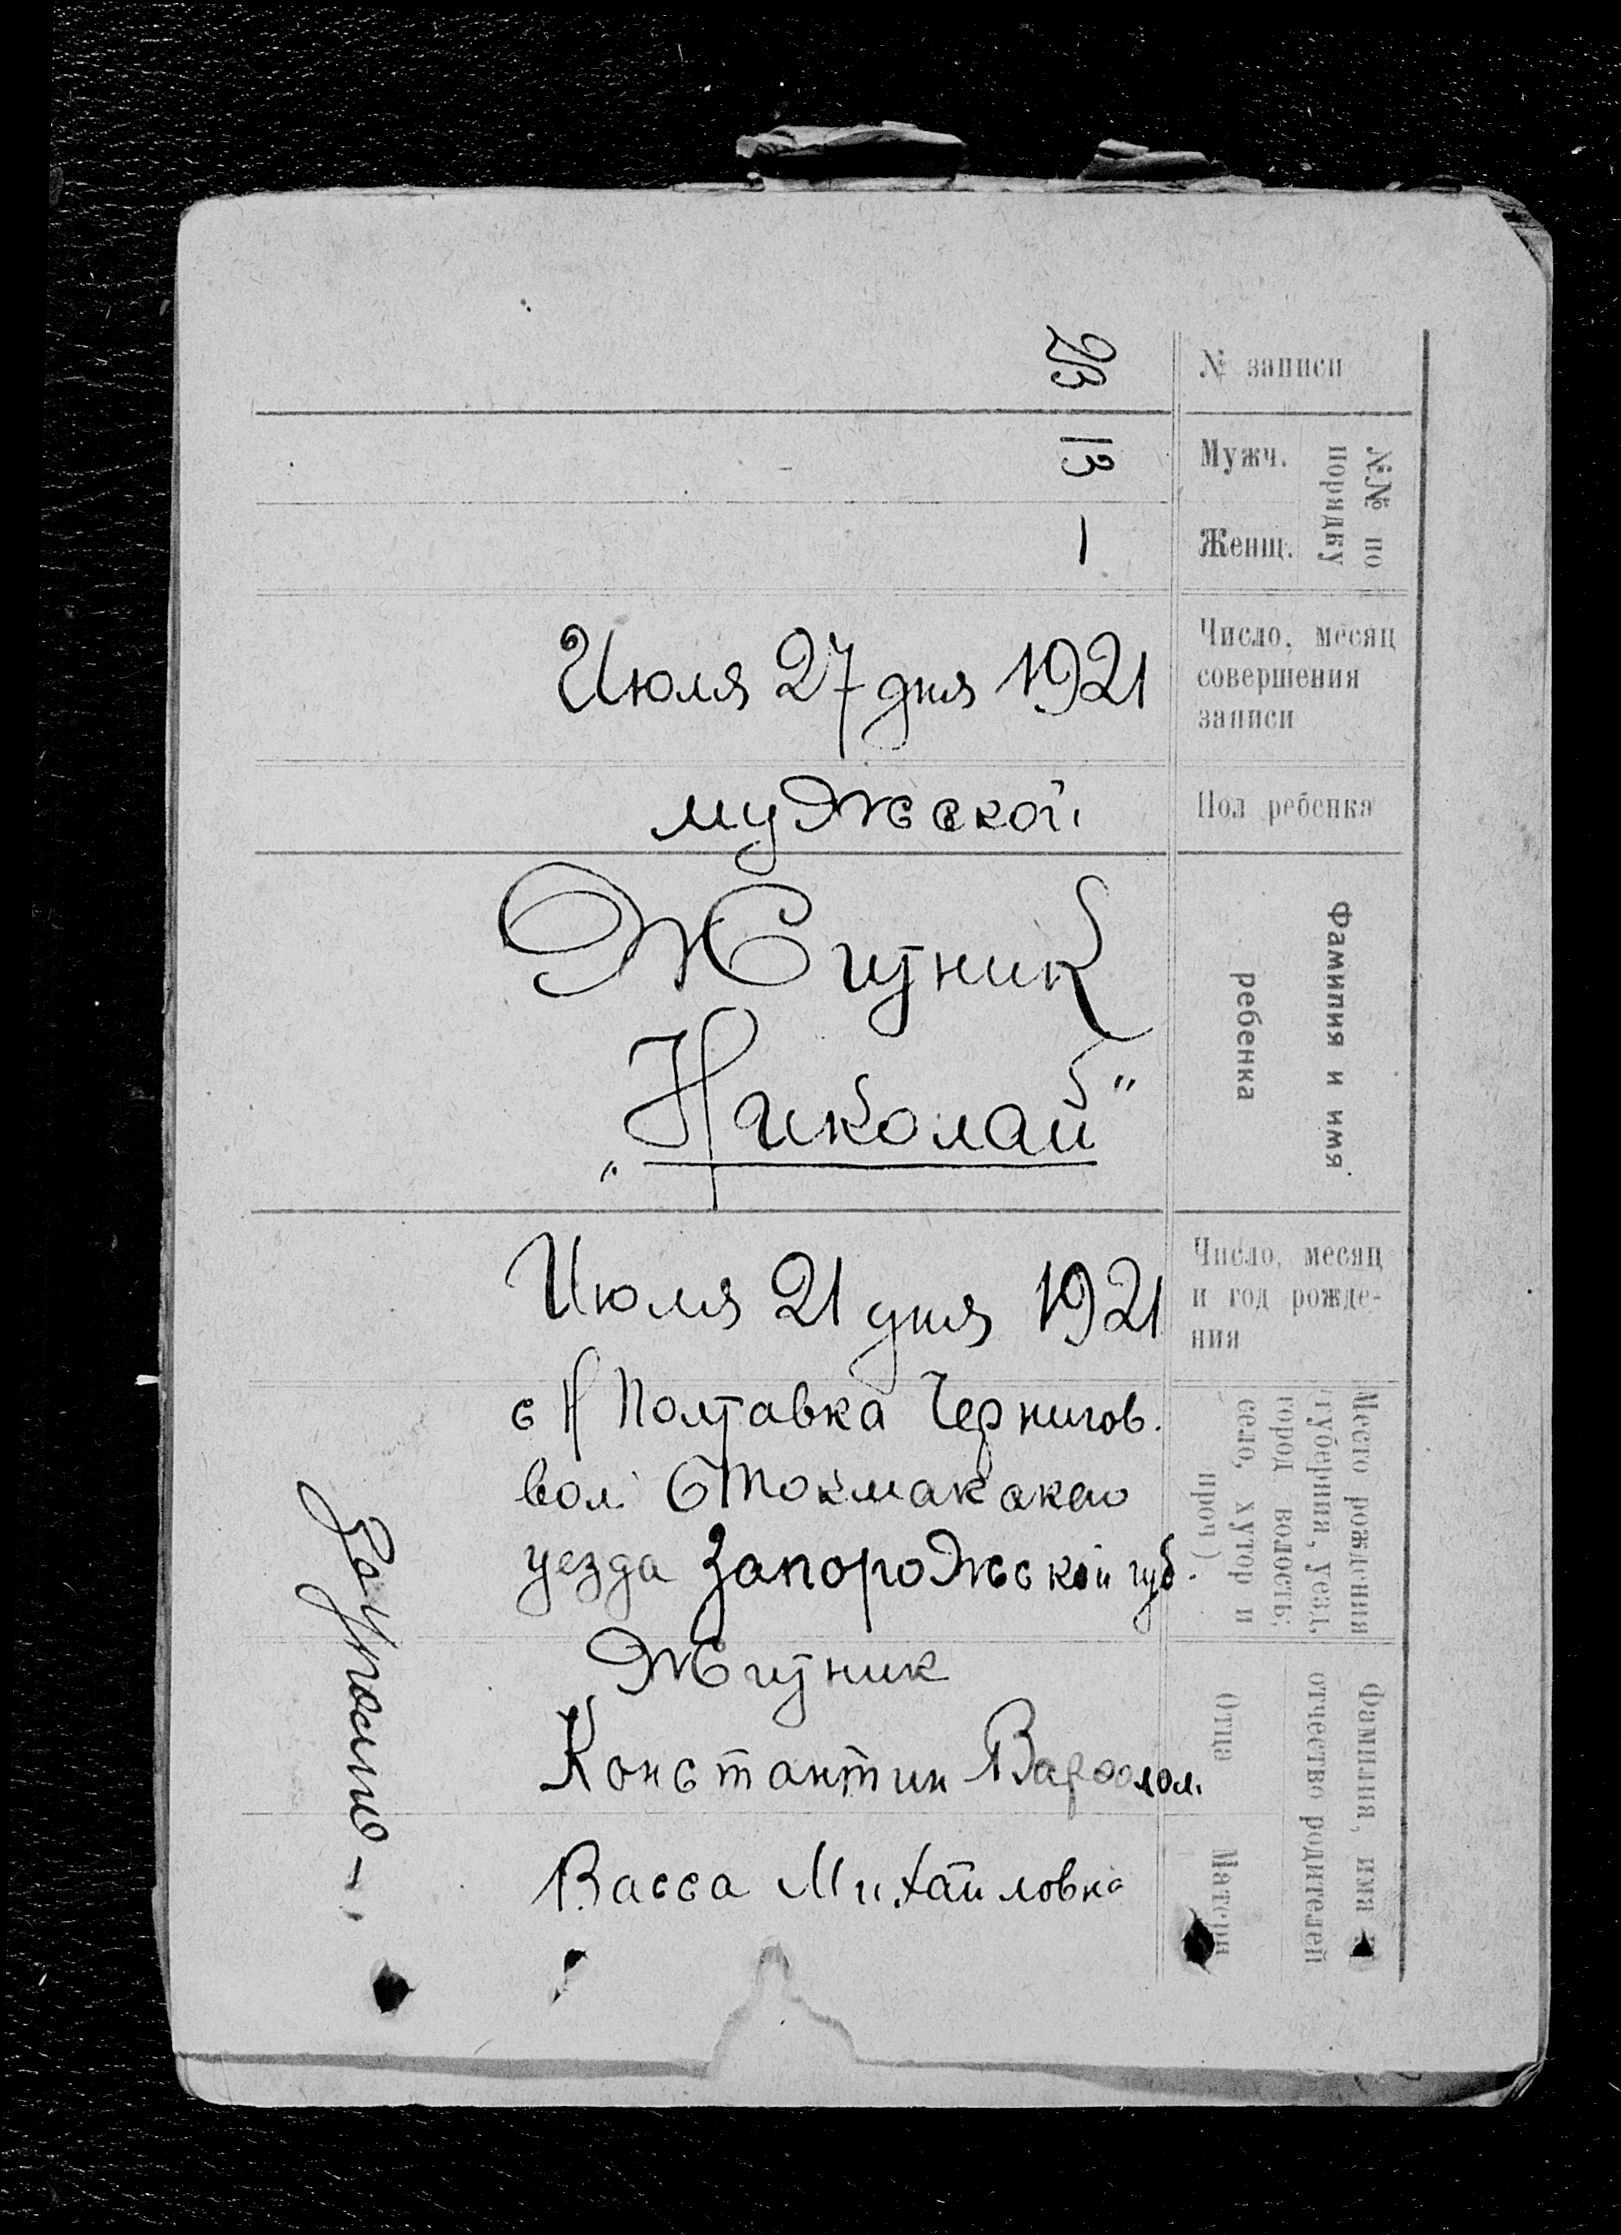 № записи
23
№№ по
порядку
Мужч.
13
Женщ.
—
Число, месяц
совершения
записи
Июля 27 дня 1921
Пол ребенка
мужской
Фамилия и имя
ребенка
Жгутник
„Николай“
Число, месяц
и год рожде-
ния
Июля 21 дня 1921
Место рождения
(губерния, уезд,
город волость;
село, хутор и
проч)
с Н Полтавка Чернигов.
вол. Б Токмакского
уезда Запорожской губ.
Фамилия, имя
отчество родителей
Отца
Жгутник
Константин Варфолом.
Матери
Васса Михайловна